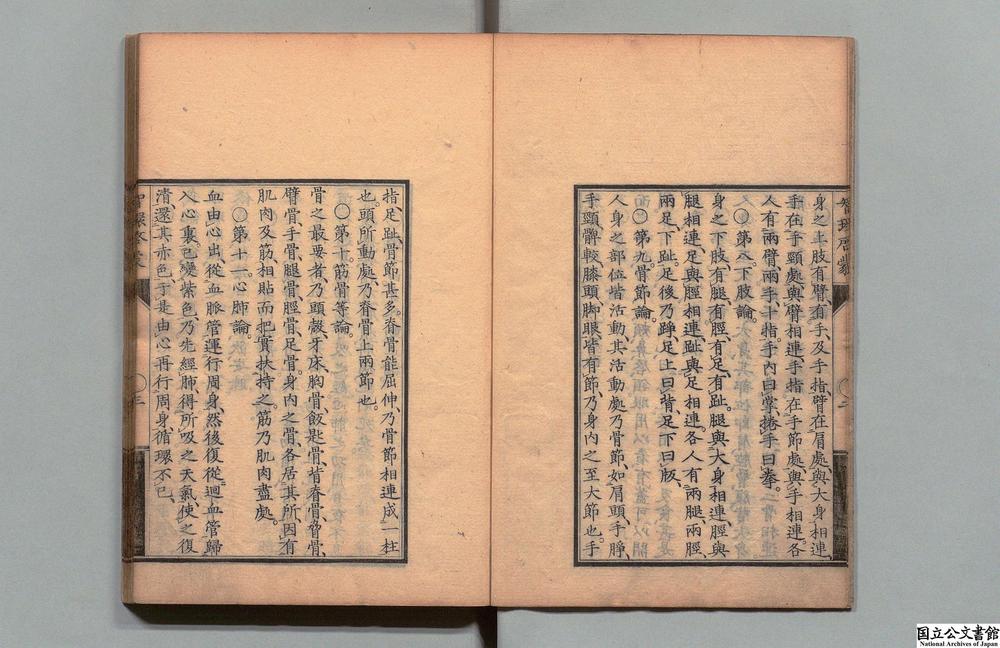 智環啓蒙
身之上肢有臂、有手、及手指、臂在肩處、與大身相連、
手在手頸處、與臂相連、手指在手節處、與手相連。各
人有兩臂、兩手、十指、手內曰掌、捲手曰拳。
〇第八下肢論。
身之下肢有腿、有脛、有足、有趾、腿與大身相連、脛與
腿相連、足與脛相連、趾與足相連。各人有兩腿、兩脛、
兩足、下趾、足後乃踭、足上曰背、足下曰䟦。
〇第九骨節論。
人身之部位、皆活動、其活動處乃骨節、如肩頭、手睜、
手頸、髀較、膝頭、脚眼、皆有節、乃身內之至大節也。手
〇二
指足趾、骨節甚多。脊骨能屈伸、乃骨節相連成一柱
也、頭所動處、乃脊骨上兩節也。
〇第十筋骨等論。
骨之最要者、乃頭殼、牙床、胸骨、飯匙骨、背脊骨、脅骨、
臂骨、手骨、腿骨、脛骨、足骨。身內之骨、各居其所、因有
肌肉及筋、相貼而把實扶持之。筋乃肌肉盡處。
〇第十一心肺論。
血由心出、從血脈管運行周身、然後復從迴血管歸
入心裏、已變紫色、乃先經肺、得所吸之天氣、使之復
清、還其赤色、于是由心再行周身、循環不已、
智環啓蒙
〇三
国立公文書館
National Archives of Japan